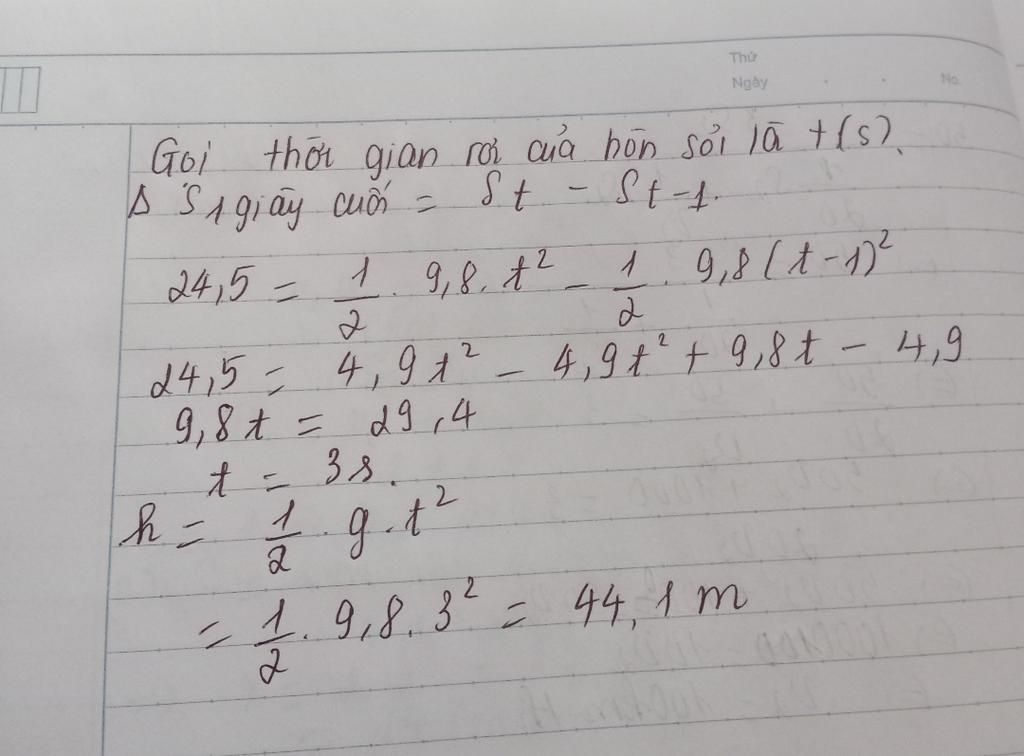 Thứ
Ngày . . No.
Gọi thời gian rơi của hòn sỏi là t(s).
Δ S 1 giây cuối = St - St-1.
24,5 = 1/2 . 9,8. t² - 1/2 . 9,8(t-1)²
24,5 = 4,9t² - 4,9t² + 9,8t - 4,9
9,8t = 29,4
t = 3s.
h = 1/2 . g . t²
= 1/2 . 9,8. 3² = 44,1 m